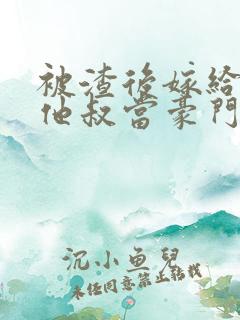 被渣後嫁給
他叔當豪門
沉小魚兒
未經同意禁止轉載